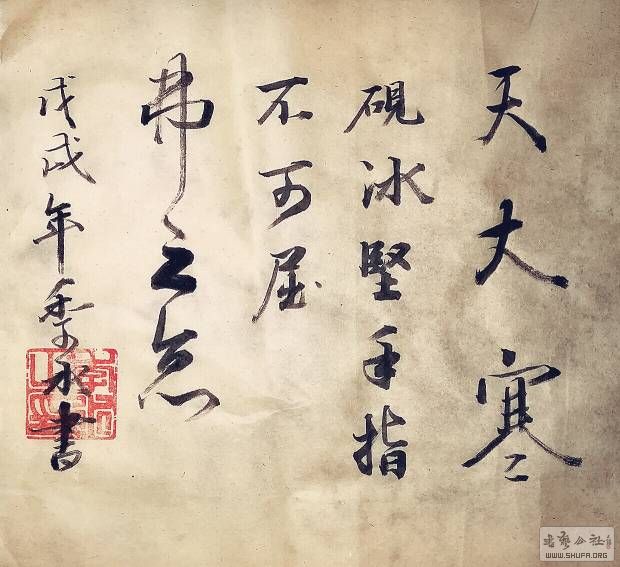 天大寒
硯冰堅手指
不可屈
弗之怠
戊戌年季永書
书艺公社
WWW.SHUFA.ORG